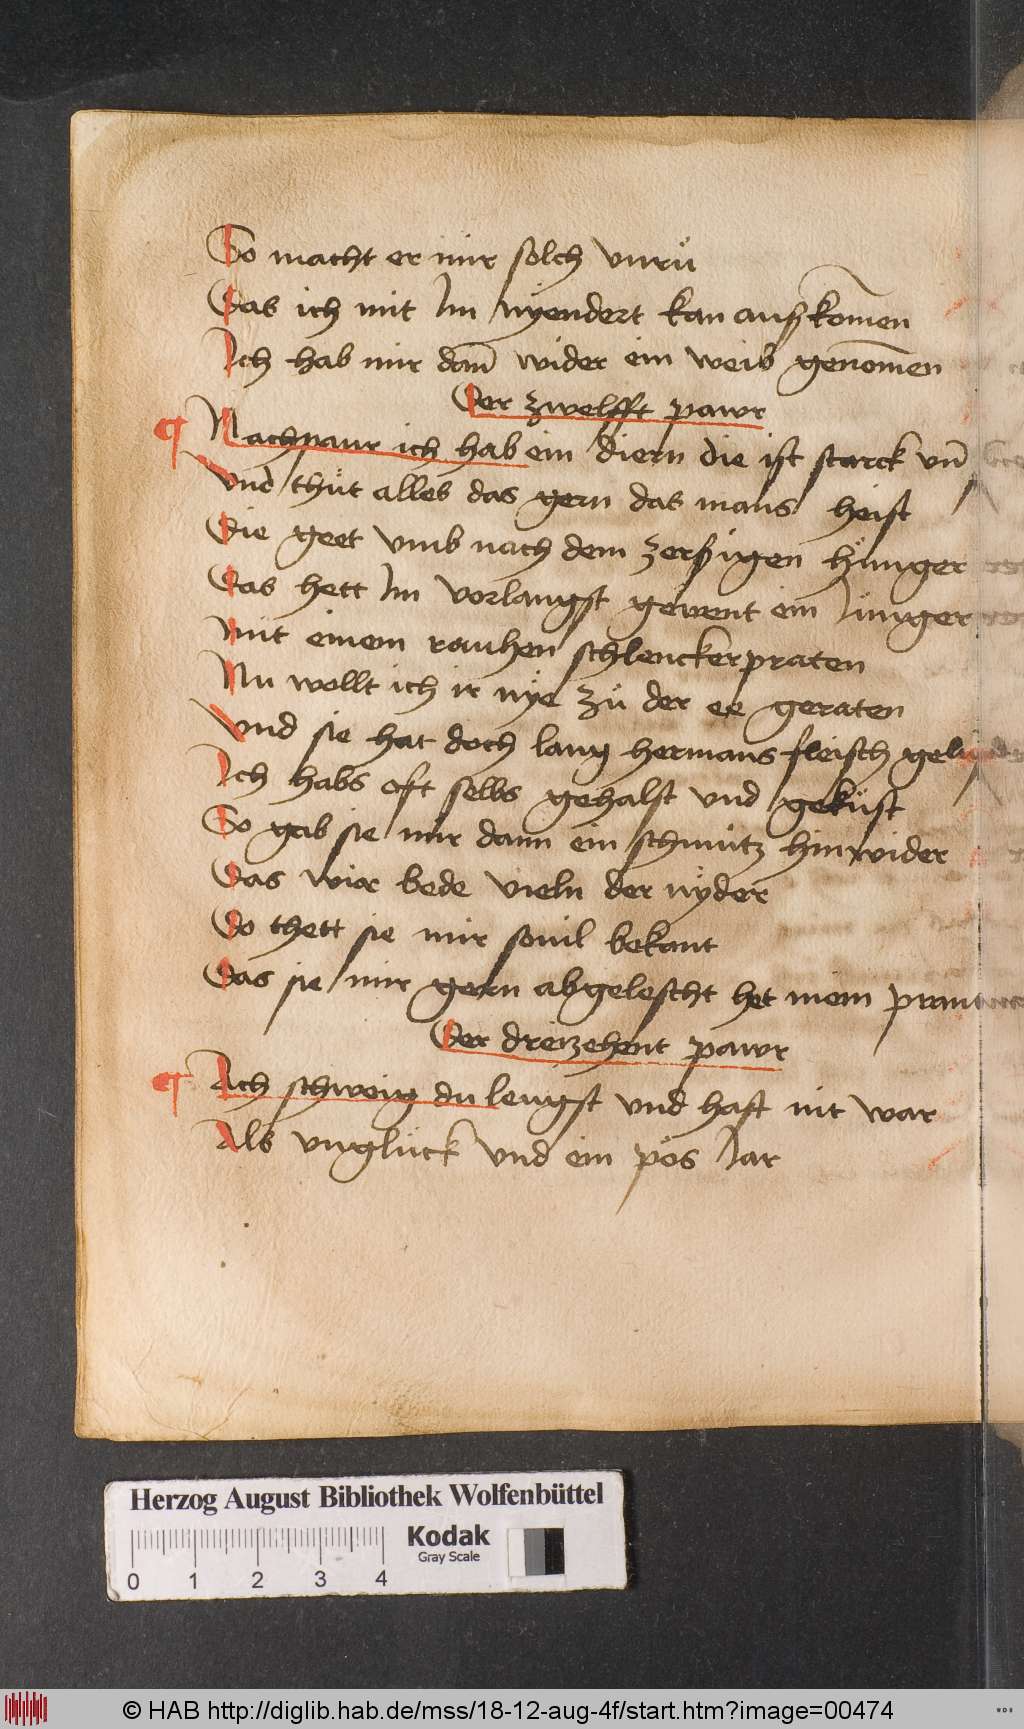 So macht er mir solch vnrů
Das ich mit Im nyendert kan außkom̄en
Ich hab mir dan̄ wider ein weib genom̄en
Der zwelfft pawr
¶ Nachpaur ich hab ein diern die ist starck vn̄
Vnd thůt alles das gern das mans heist
Die geet vmb nach dem zerßigen hünger
Das hett Im vorlangst gewent ein Jünger
mit einem rauhen schlenckerpraten
Nu wollt ich ir nye zů der ee geraten
Vnd sie hat doch lang hermans fleisch
Ich habs oft selbs gehalst vnd geküst
So gab sie mir dann ein schmütz hinwider
Das wir bede vieln der nyder
Do thett sie mir souil bekant
Das sie mir gern abgelescht het mein prant
Der dreizehent pawr
¶ Ach schweig du leugst vnd hast nit war
Als vnglück vnd ein pös Jar
Herzog August Bibliothek Wolfenbüttel
Kodak
Gray Scale
0 1 2 3 4
© HAB http://diglib.hab.de/mss/18-12-aug-4f/start.htm?image=00474